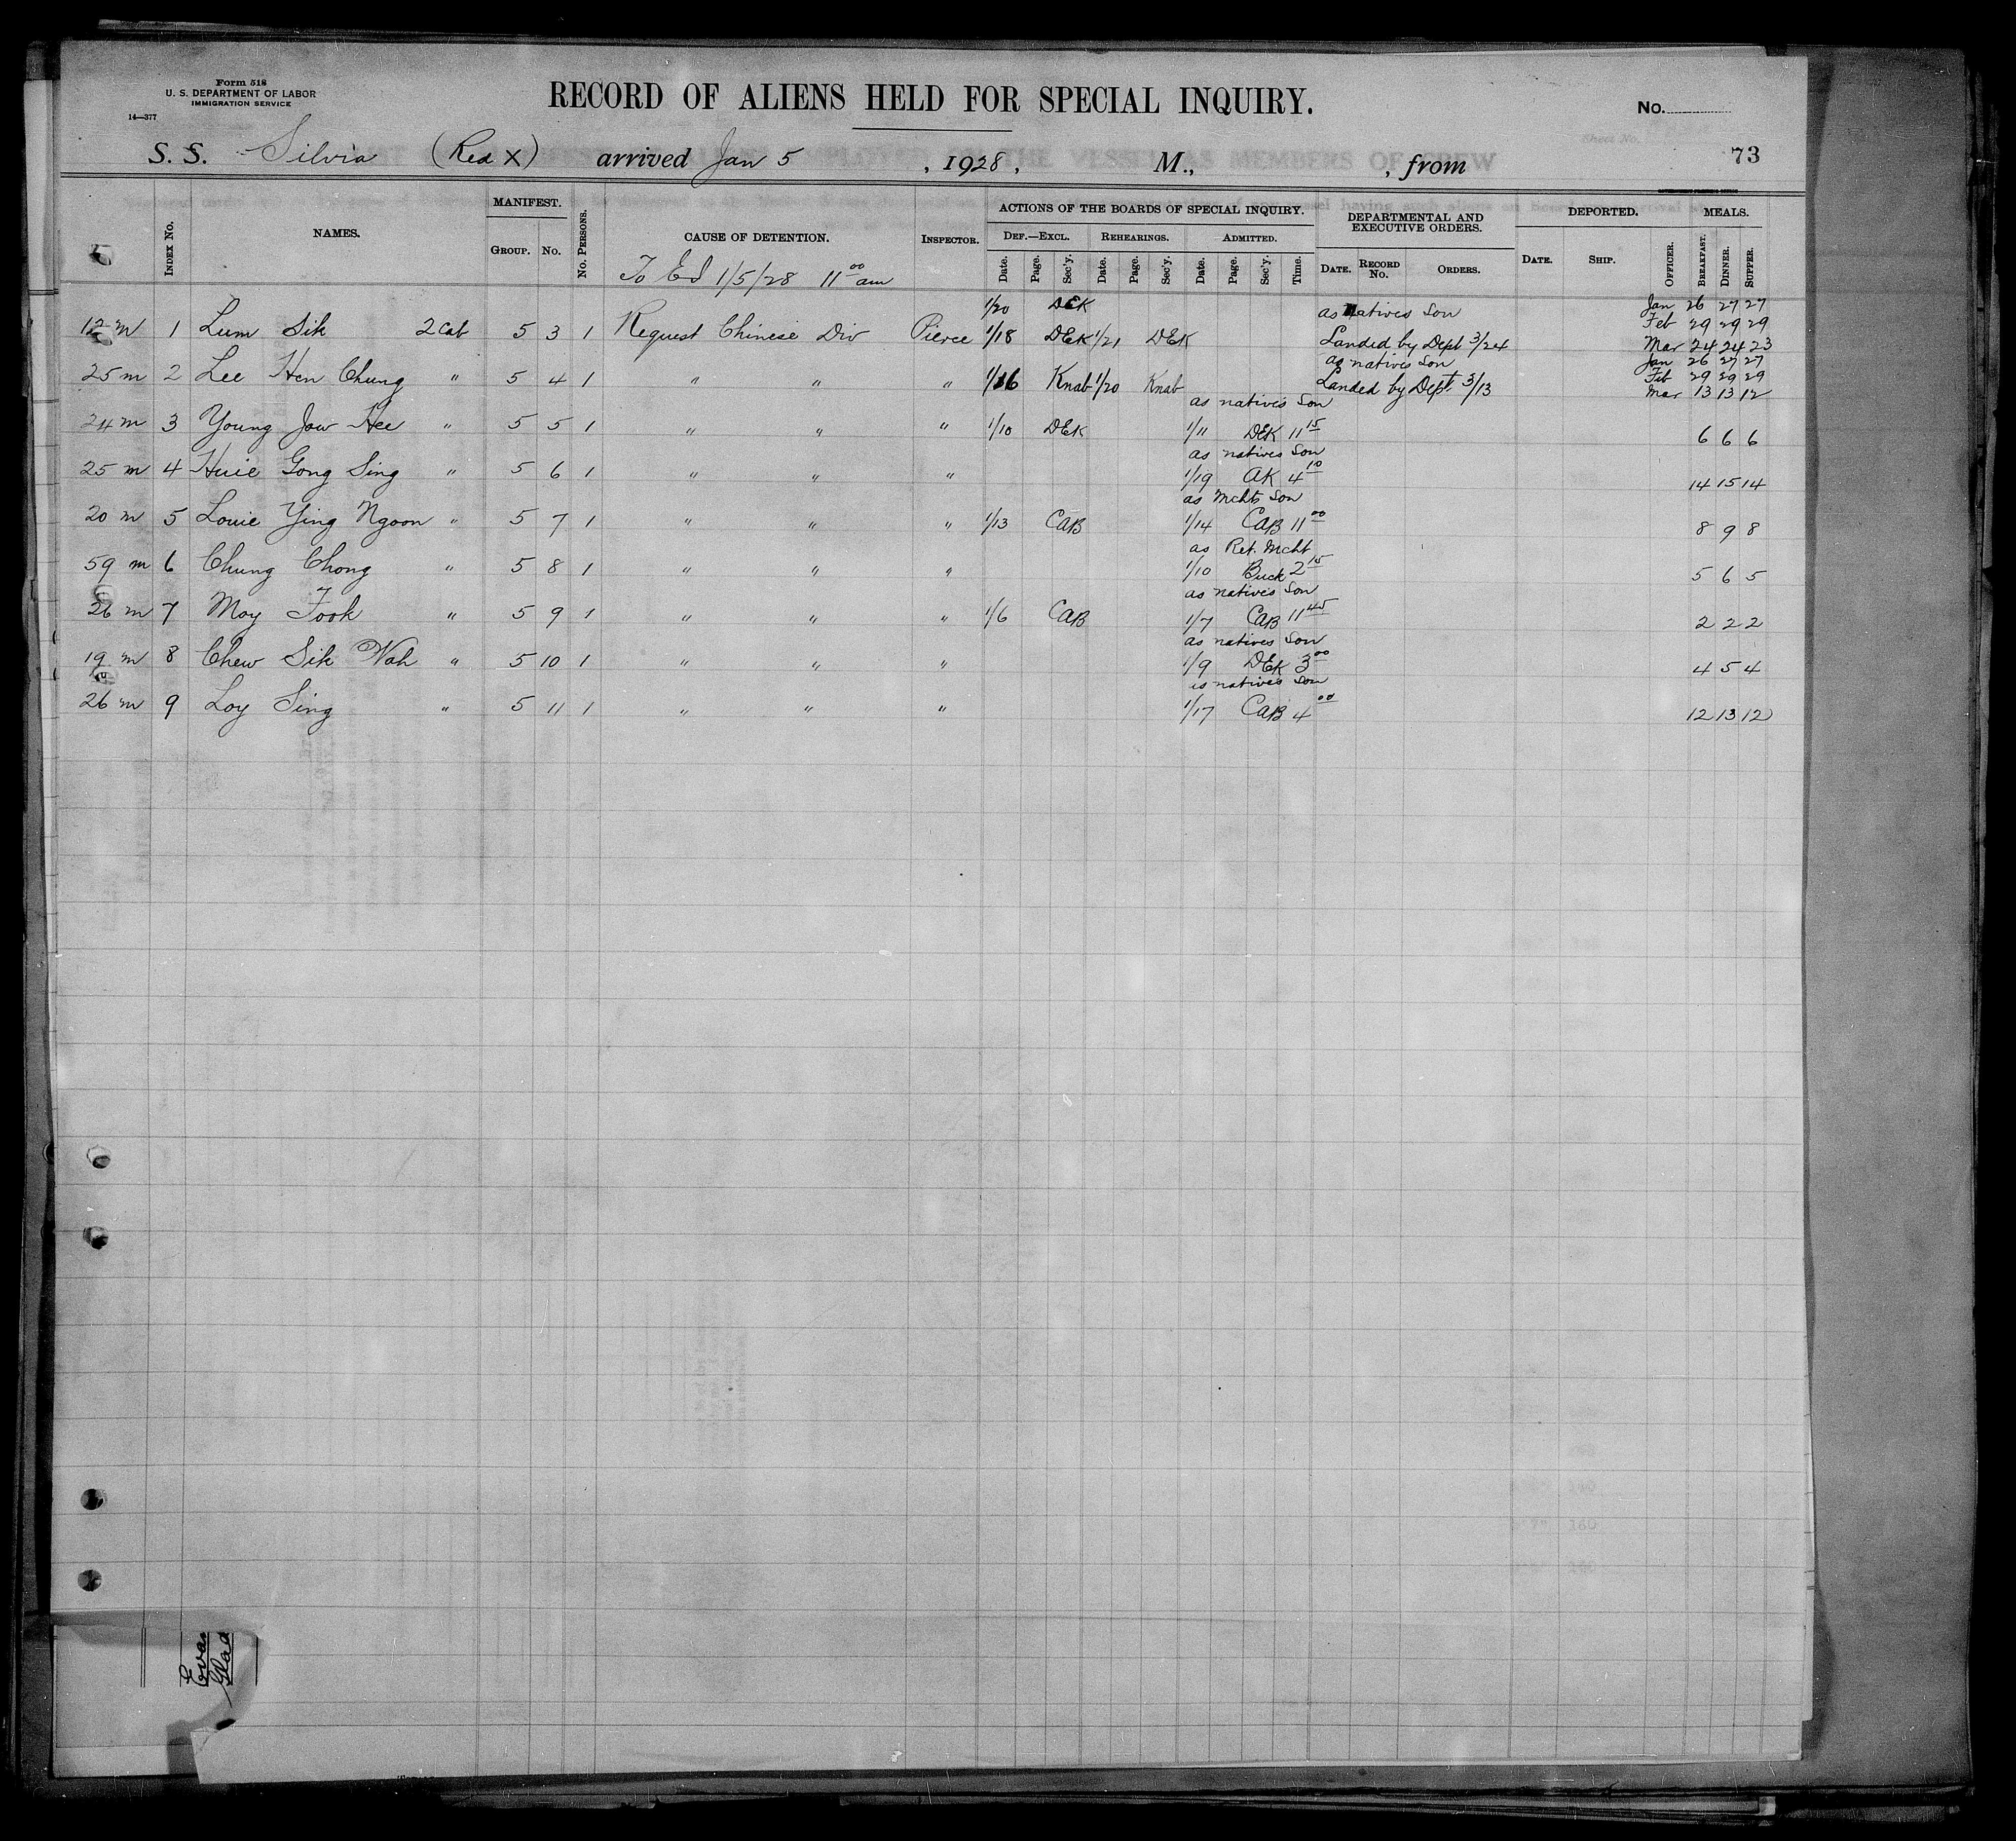 Form 518
U. S. DEPARTMENT OF LABOR
IMMIGRATION SERVICE
14—377
RECORD OF ALIENS HELD FOR SPECIAL INQUIRY.
No.
S. S. Silvia (Red X) arrived Jan 5, 1928, M., , from 73
INDEX No. NAMES. MANIFEST. GROUP. No. No. PERSONS. CAUSE OF DETENTION. INSPECTOR. ACTIONS OF THE BOARDS OF SPECIAL INQUIRY. DEF.—EXCL. Date. Page. Sec'y. REHEARINGS. Date. Page. Sec'y. ADMITTED. Date. Page. Sec'y. Time. DEPARTMENTAL AND EXECUTIVE ORDERS. DATE. RECORD No. ORDERS. DEPORTED. DATE. SHIP. OFFICER. MEALS. BREAKFAST. DINNER. SUPPER.
To EI 1/5/28 11 00 am
1/20 DEK as natives Son Jan 26 27 27
Feb 29 29 29
12 m 1 Lum Sik 2 Cab 5 3 1 Request Chinese Div Pierce 1/18 DEK 1/21 DEK Landed by Dept 3/24 Mar 24 24 23
as natives Son Jan 26 27 27
25 m 2 Lee Hen Chung " 5 4 1 " " " 1/16 Knab 1/20 Knab Landed by Dept 3/13 Feb 29 29 29
Mar 13 13 12
as natives Son
24 m 3 Young Jow Hee " 5 5 1 " " " 1/10 DEK 1/11 DEK 11 15 6 6 6
as natives Son
25 m 4 Huie Gong Sing " 5 6 1 " " " 1/19 AK 4 10 14 15 14
as Mchts Son
20 m 5 Louie Ying Ngoon " 5 7 1 " " " 1/13 CAB 1/14 CAB 11 00 8 9 8
as Ret. Mcht
59 m 6 Chung Chong " 5 8 1 " " " 1/10 Buck 2 15 5 6 5
as natives Son
26 m 7 Moy Fook " 5 9 1 " " " 1/6 CAB 1/7 CAB 11 45 2 2 2
as natives Son
19 m 8 Chew Sik Wah " 5 10 1 " " " 1/9 DEK 3 00 4 5 4
as natives Son
26 m 9 Loy Sing " 5 11 1 " " " 1/17 CAB 4 00 12 13 12
Eva
Glad